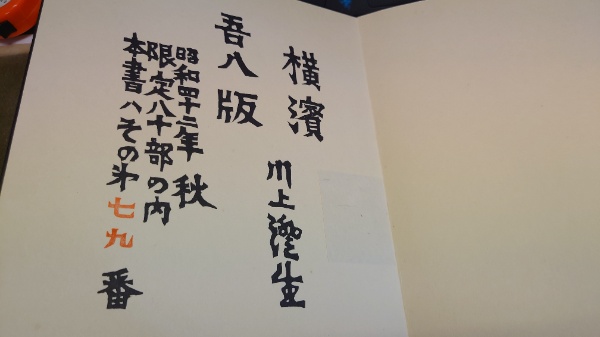 横濱
川上澄生
吾八版
昭和四十二年秋
限定八十部の内
本書ハその第七九番